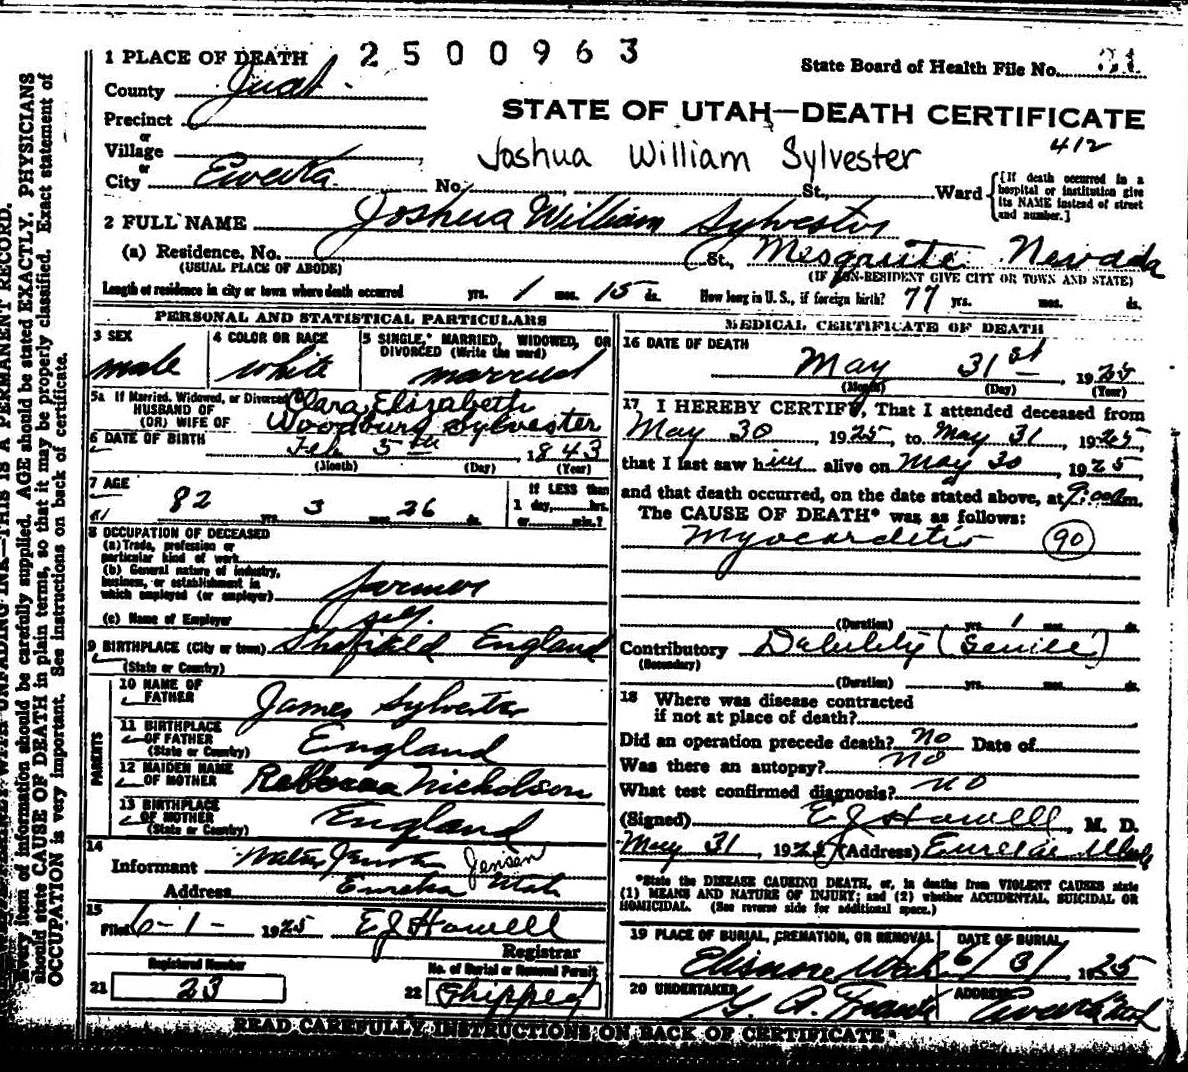 1 PLACE OF DEATH 2500963
State Board of Health File No. 21
County Juab
STATE OF UTAH—DEATH CERTIFICATE
Precinct
or
412
Village
Joshua William Sylvester
or
City Eureka No. St., Ward
[If death occurred in a hospital or institution give its NAME instead of street and number.]
2 FULL NAME Joshua William Sylvester
(a) Residence. No. St., Mesquite Nevada
(USUAL PLACE OF ABODE) (IF NON-RESIDENT GIVE CITY OR TOWN AND STATE)
Length of residence in city or town where death occurred yrs. 1 mos. 15 ds. How long in U. S., if foreign birth? 77 yrs. mos. ds.
PERSONAL AND STATISTICAL PARTICULARS
3 SEX 4 COLOR OR RACE 5 SINGLE, MARRIED, WIDOWED, OR DIVORCED (Write the word)
male white married
5a If Married, Widowed, or Divorced
HUSBAND OF
(OR) WIFE OF
Clara Elizabeth
Woodbury Sylvester
6 DATE OF BIRTH Feb 5th 1843
(Month) (Day) (Year)
7 AGE If LESS than
82 yrs. 3 mos. 26 ds. 1 day, hrs.
or min.?
8 OCCUPATION OF DECEASED
(a) Trade, profession or
particular kind of work
(b) General nature of industry,
business, or establishment in
which employed (or employer) farmer
(c) Name of Employer self
9 BIRTHPLACE (City or town) Shefield England
(State or Country)
PARENTS
10 NAME OF
FATHER James Sylvester
11 BIRTHPLACE
OF FATHER England
(State or Country)
12 MAIDEN NAME
OF MOTHER Rebecca Nicholson
13 BIRTHPLACE
OF MOTHER England
(State or Country)
14
Informant Walter Jensen
Jensen
Address Eureka Utah
15
Filed 6-1- 1925 EJ Howell
Registrar
Registered Number No. of Burial or Removal Permit
21 23 22 Shipped
MEDICAL CERTIFICATE OF DEATH
16 DATE OF DEATH
May 31st 1925
(Month) (Day) (Year)
17 I HEREBY CERTIFY, That I attended deceased from
May 30 1925, to May 31 1925,
that I last saw him alive on May 30 1925
and that death occurred, on the date stated above, at 9:00 m.
The CAUSE OF DEATH* was as follows:
Myocarditis 90
(Duration) yrs. 1 mos. ds.
Contributory Debility (Senile)
(Secondary)
(Duration) yrs. mos. ds.
18 Where was disease contracted
if not at place of death?
Did an operation precede death? no Date of
Was there an autopsy? no
What test confirmed diagnosis? no
(Signed) EJ Howell, M. D.
May 31, 1925 (Address) Eureka Utah
*State the DISEASE CAUSING DEATH, or, in deaths from VIOLENT CAUSES state
(1) MEANS AND NATURE OF INJURY; and (2) whether ACCIDENTAL, SUICIDAL OR
HOMICIDAL. (See reverse side for additional space.)
19 PLACE OF BURIAL, CREMATION, OR REMOVAL DATE OF BURIAL
Elsinore Utah 6/3/, 1925
20 UNDERTAKER ADDRESS
G. A. Franks Eureka Utah
READ CAREFULLY INSTRUCTIONS ON BACK OF CERTIFICATE
WITH UNFADING INK—THIS IS A PERMANENT RECORD.
Every item of information should be carefully supplied. AGE should be stated EXACTLY. PHYSICIANS
should state CAUSE OF DEATH in plain terms, so that it may be properly classified. Exact statement of
OCCUPATION is very important. See instructions on back of certificate.